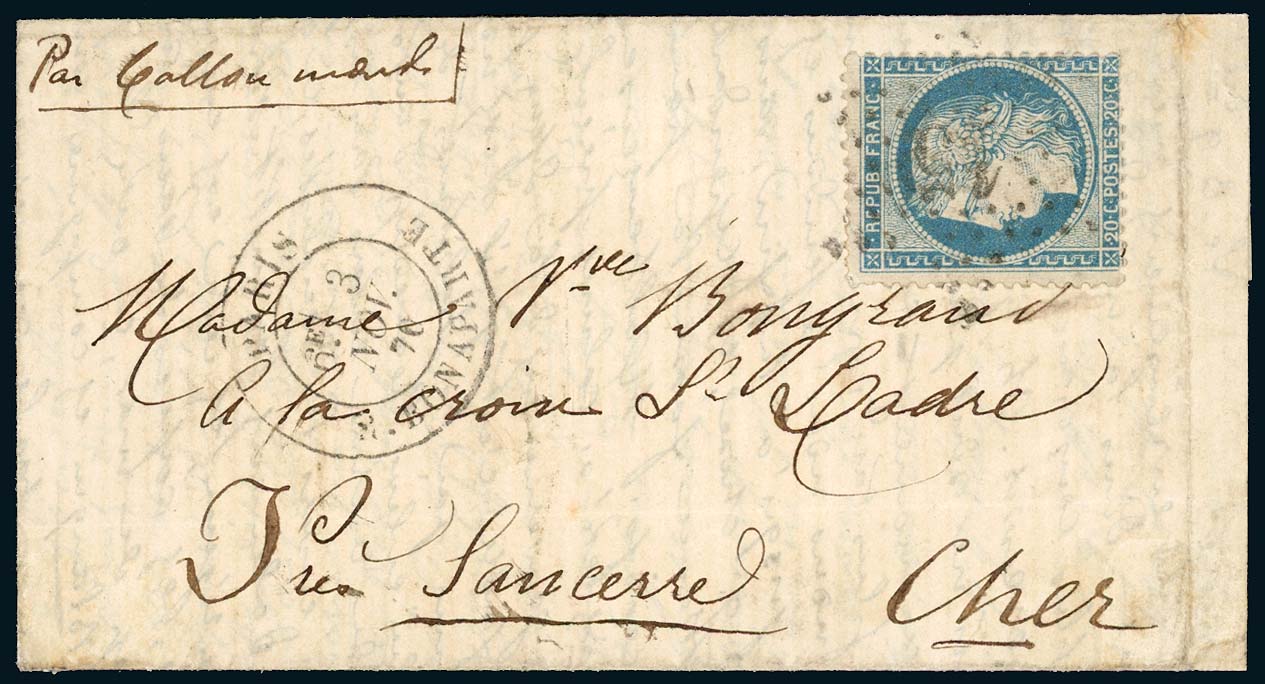 Par Ballon monté
REPUB FRANC
20·C·POSTES·20·C·
PARIS
R. BONAPARTE
6E
3
NOV.
70
Madame Vve Bongrand
A la croix St Ladre
Près Sancerre
Cher